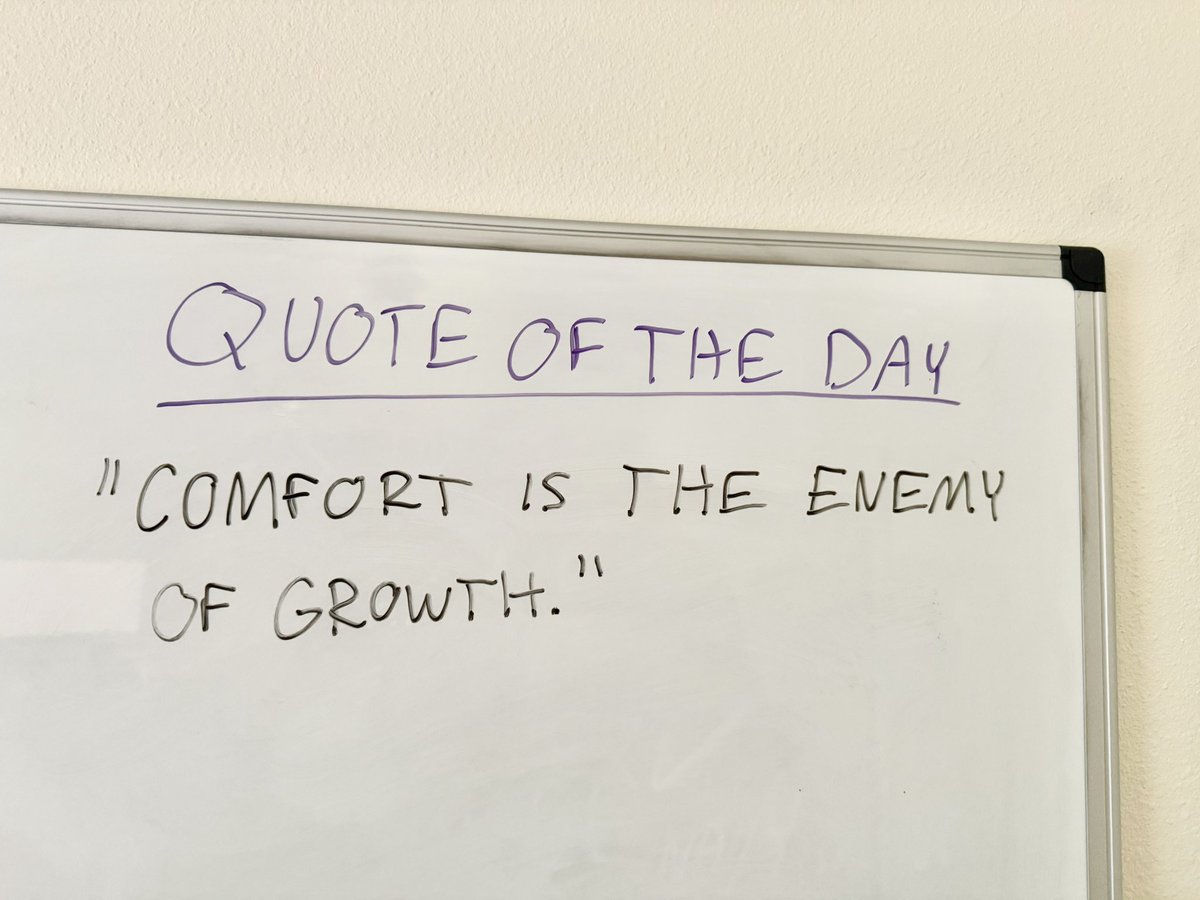 QUOTE OF THE DAY
"COMFORT IS THE ENEMY
OF GROWTH."